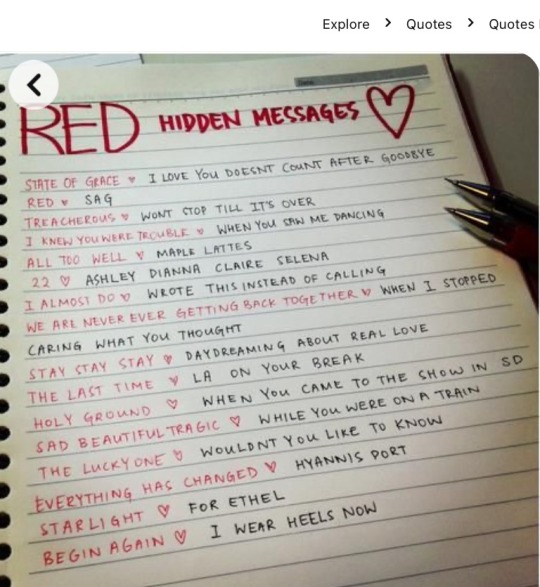 Explore > Quotes > Quotes
RED HIDDEN MESSAGES ♡
STATE OF GRACE ♥ I LOVE YOU DOESNT COUNT AFTER GOODBYE
RED ♥ SAG
TREACHEROUS ♥ WONT STOP TILL IT'S OVER
I KNEW YOU WERE TROUBLE ♥ WHEN YOU SAW ME DANCING
ALL TOO WELL ♥ MAPLE LATTES
22 ♡ ASHLEY DIANNA CLAIRE SELENA
I ALMOST DO ♡ WROTE THIS INSTEAD OF CALLING
WE ARE NEVER EVER GETTING BACK TOGETHER ♥ WHEN I STOPPED
CARING WHAT YOU THOUGHT
STAY STAY STAY ♥ DAYDREAMING ABOUT REAL LOVE
THE LAST TIME ♥ LA ON YOUR BREAK
HOLY GROUND ♡ WHEN YOU CAME TO THE SHOW IN SD
SAD BEAUTIFUL TRAGIC ♡ WHILE YOU WERE ON A TRAIN
THE LUCKY ONE ♡ WOULDNT YOU LIKE TO KNOW
EVERYTHING HAS CHANGED ♥ HYANNIS PORT
STARLIGHT ♡ FOR ETHEL
BEGIN AGAIN ♡ I WEAR HEELS NOW